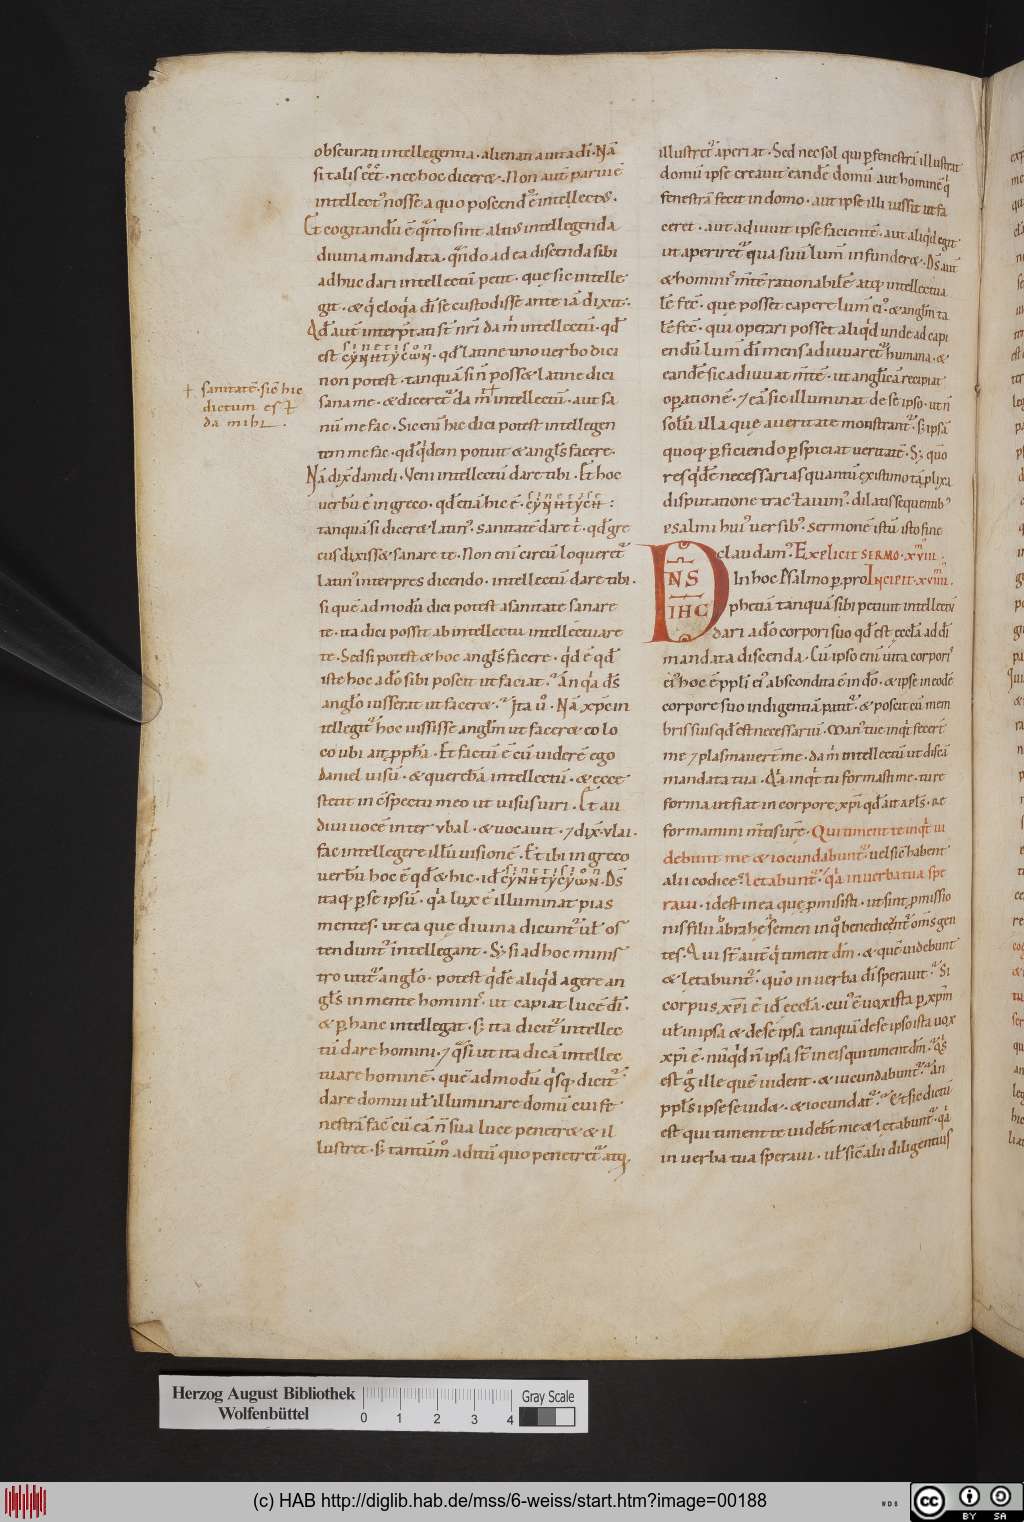 obscurati intellegentia · alienati a uita dī · Nā
si talis eēt · nec hoc diceret · Non aut̄ parum ē
intellectꝰ nosse a quo poscendꝰ ē intellectꝰ ·
Et cogitandū ē qn̄to sint altius intellegenda
diuina mandata · qn̄do ad ea discenda sibi
adhuc dari intellectū petit · que sic intelle
git · & q̄ eloq̄a dī se custodisse ante iā dixit ·
Ad̄ aut̄ interp̄tati st̄ nr̄i da m̄ intellectū · qd̄
est cynhtycωn · qd̄ latine uno uerbo dici
sinetison
non potest · tanquā si n̄ posset latine dici
✝ sanitatē · sic hic
dictum est
da mihi
sana me · & diceret̄ da m̄ intellectū · aut sa
nū me fac · Sic enī hic dici potest intellegen
tem me fac · qd̄ q̄dem potuit & angl̄s facere ·
Nā dix̄ danieli · Veni intellectū dare tibi · Et hoc
uerbū ē in greco · qd̄ etiā hic ē ·
tanquā si diceret latinꝰ · sanitatē dare t̄ · qd̄ gre
cus dixisset sanare te · Non enī circū loqueret̄
latinꝰ interpres dicendo · intellectū dare tibi ·
si quē ad modū dici potest a sanitate sanare
te · ita dici possit ab intellectu intellectuare
te · Sed si potest & hoc angl̄s facere · qd̄ ē qd̄
iste hoc a dō sibi poscit ut faciat · An q̄a dꝭ
anglo iusserat ut faceret · Ita ū · Nā xp̄c in
tellegit̄ hoc iussisse anglm̄ ut faceret co lo
co ubi ait pph̄a · Et factū ē cū uiderē ego
daniel uisū · & querebā intellectū · & ecce
stetit in c̄spectu meo ut uisus uiri · Et au
diui uocē inter ubal · & uocauit · ⁊ dix̄ ulai ·
fac intellegere illū uisionē · Et ibi in greco
uerbū hoc ē qd̄ & hic · id̄ · D̄s
itaq; per se ipsū · q̄a lux ē illuminat pias
mentes · ut ea que diuina dicunt̄ ul̄ os
tendunt̄ intellegant · S; si ad hoc minis
tro utit̄ anglo · potest q̄dē aliq̄d agere an
gl̄s in mente hominiꝰ · ut capiat lucē dī ·
& p̄ hanc intellegat · s; ita dicit̄ intellec
tū dare homini · ⁊ q̄si ut ita dicā intellec
tuare hominē · quē ad modū q̄sq; dicit̄
dare domui ul̄ illuminare domū cui fe
nestrā fac̄ cū eā n̄ sua luce penetret & il
lustret · s; tantūm̊ aditū quo penetret̄ atq;
illustret̄ aperiat · Sed nec sol qui p̄ fenestrā illustrat
domū ipse creauit eandē domū aut hominē q̄
fenestrā fecit in domo · aut ipse illi iussit ut fa
ceret · aut adiuuit ipse facientē · aut aliq̄d egit
ut aperiret̄ qua suū lum̄ infunderet · D̄s aut̄
& hominiꝰ mt̄ē rationabilē atq; intellectua
lē fec̄ · que posset capere lum̄ eiꝰ · & anglm̄ ta
lē fec̄ · qui operari posset aliq̄d unde ad capi
endū lum̄ dī mens adiuuaret̄ humana · &
eandē sic adiuuat mt̄ē · ut anglicā recipiat
op̄ationē · ⁊ eā sic illuminat de se ipso · ut n̄
solū illa que a ueritate monstrant̄ · s; ipsā
quoq; p̄ficiendo p̄spiciat ueritatē · S; quō
res q̄dē necessarias quantū existimo tā plixa
disputatione tractauimꝰ · dilatis sequentibꝰ
psalmi huiꝰ uersibꝰ · sermonē istū isto fine
claudamꝰ · Explicit sermo · xviii ·
DNS IHC In hoc Psalmo p̄ pro Incipit · xviiii ·
phetiā tanquā sibi petiuit intellectū
dari a dō corpori suo qd̄ est ecclā ad dī
mandata discenda · Cū ipso enī uita corporiꝰ
eiꝰ hoc ē ppl̄i eiꝰ abscondita ē in dō · & ipse in eodē
corpore suo indigentiā patit̄ · & poscit cū mem
bris suis qd̄ est necessariū · Manꝰ tue inq̄t fecer̄t
me ⁊ plasmauer̄t me · da m̄ intellectū ut discā
mandata tua · Q̄a inq̄t tu formasti me · tu re
forma ut fiat in corpore xp̄i qd̄ ait apl̄s · Re
formamini mt̄is ur̄e · Qui timent te inq̄t ui
debunt me & iocundabunt̄ · uel sic̄ habent
alii codices · letabunt̄ · q̄a in uerba tua spe
raui · id est in ea que p̄misisti · ut sint p̄missio
nis filii abrahe semen in quo benedicent̄ om̄s gen
tes · Qui st̄ aut̄ q̄ timent dm̄ · & quē uidebunt
& letabunt̄ · quō in uerba dī sperauit · Si
corpus xp̄i ē id ē ecclā · cuiꝰ ē uox ista p̄ xp̄m
ul̄ in ipsa & de se ipsa tanquā de se ipso ista uox
xp̄i ē · nūq̄d n̄ ipsa st̄ in eis qui timent dm̄ · Q̄s
est ḡ ille quē uident · & iucundabunt̄ · An
ppl̄s ipse se uidet · & iocundat̄ · & sic dictū
est qui timent te uidebt̄ me & letabunt̄ · q̄a
in uerba tua speraui · ul̄ sic̄ alii diligentius
Herzog August Bibliothek
Wolfenbüttel
0 1 2 3 4
Gray Scale
(c) HAB http://diglib.hab.de/mss/6-weiss/start.htm?image=00188
WDB
cc BY SA